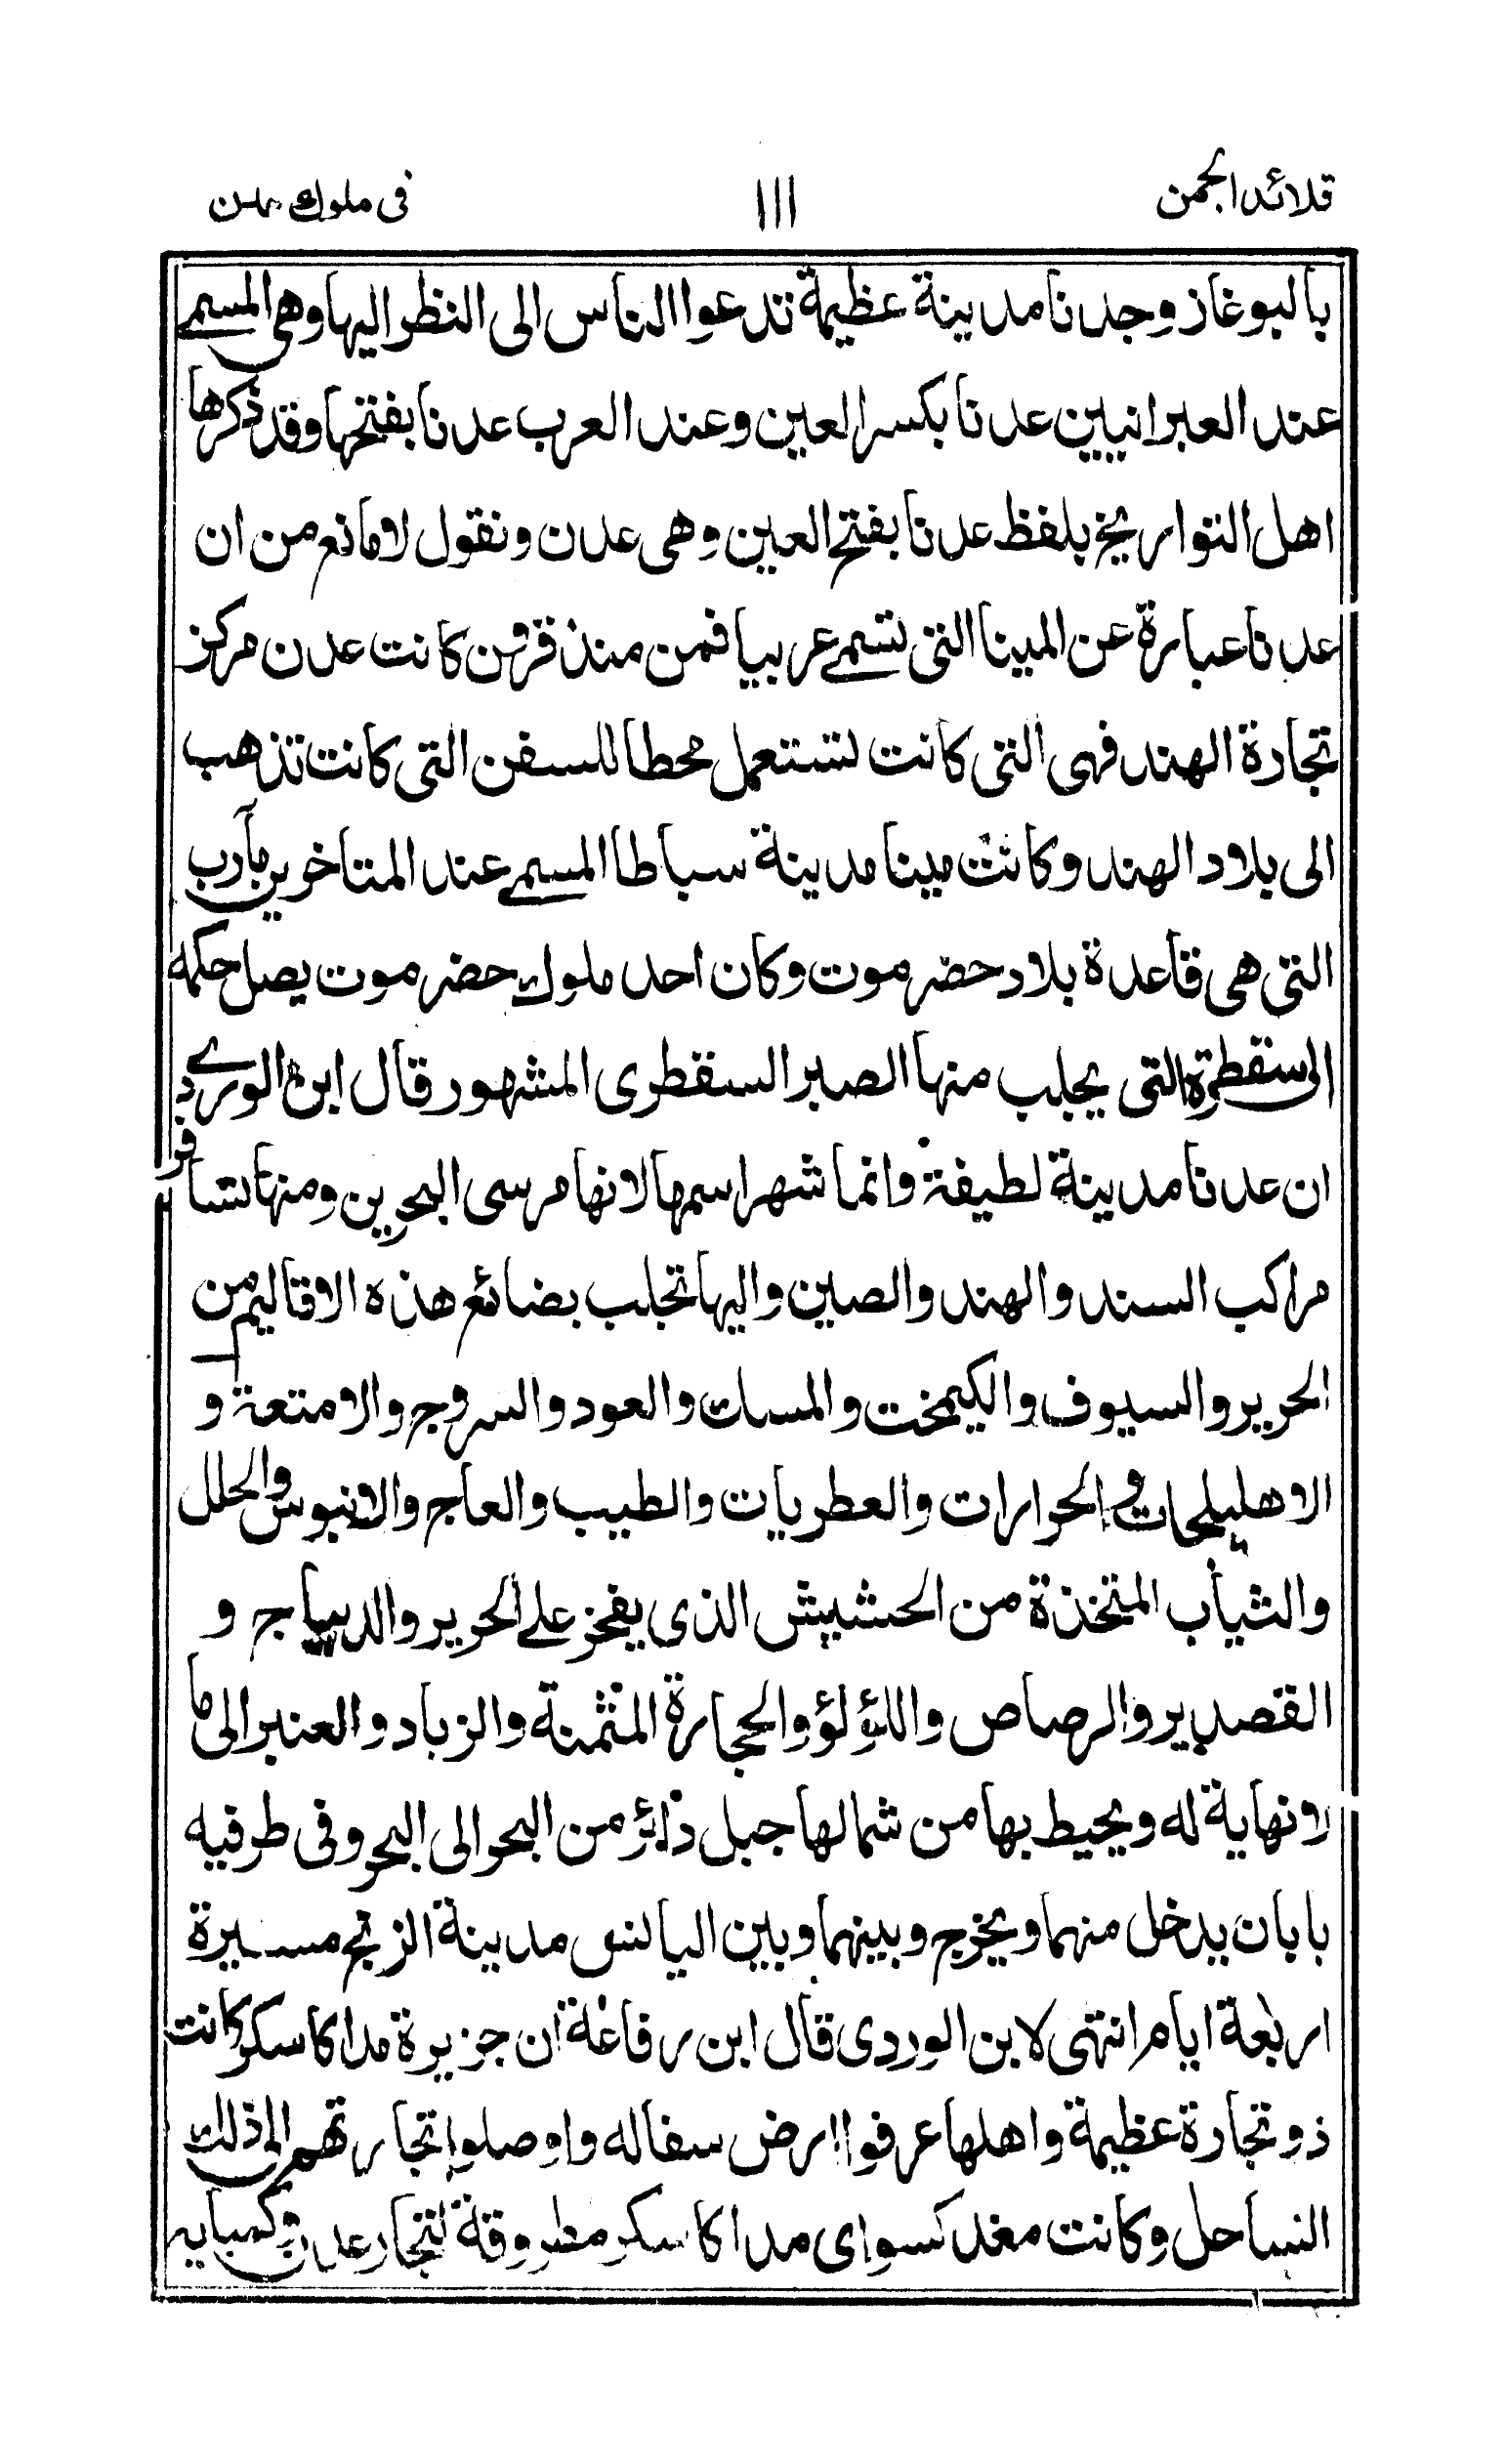 قلائد الجمن ١١١ فى ملوك عدن
بالبوغاز وجدنا مدينة عظيمة تدعوا الناس الى النظر اليها وهى المسمى
عند العبرانيين عدنا بكسر العين وعند العرب عدنا بفتحها وقد ذكرها
اهل التواريخ بلفظ عدنا بفتح العين وهى عدن ونقول لا مانع من ان
عدنا عبارة عن المينا التى تسمى عربيا فمن منذ قرون كانت عدن مركز
تجارة الهند فهى التى كانت تستعمل محطا للسفن التى كانت تذهب
الى بلاد الهند وكانت مينا مدينة سباطا المسمى عند المتاخرين مأرب
التى هى قاعدة بلاد حضرموت وكان احد ملوك حضرموت يصل حكمه
الى سقطرة التى يجلب منها الصبر السقطرى المشهور قال ابن الوردى
ان عدنا مدينة لطيفة وانما شهر اسمها لانها مرسى البحرين ومنها تسافر
مراكب السند والهند والصين واليها تجلب بضائع هذه الاقاليم من
الحرير والسيوف والكيمخت والمسك والعود والسروج والامتعة و
الاهليلجات والحرارات والعطريات والطيب والعاج والابنوس والحلل
والثياب المتخذة من الحشيش الذى يفخر على الحرير والديباج و
القصدير والرصاص واللؤلؤ والحجارة المثمنة والزباد والعنبر الى ما
لا نهاية له ويحيط بها من شمالها جبل دائر من البحر الى البحر وفى طرفيه
بابان يدخل منهما ويخرج وبينهما وبين اليالس مدينة الزنج مسيرة
اربعة ايام انتهى لابن الوردى قال ابن رفاعة ان جزيرة مداكاسكر كانت
ذو تجارة عظيمة واهلها عرفوا ارض سفاله واوصلوا تجارتهم الى ذلك
الساحل وكانت مغدكسو اى مداكاسكر مطروقة لتجار عدن وكمبايه